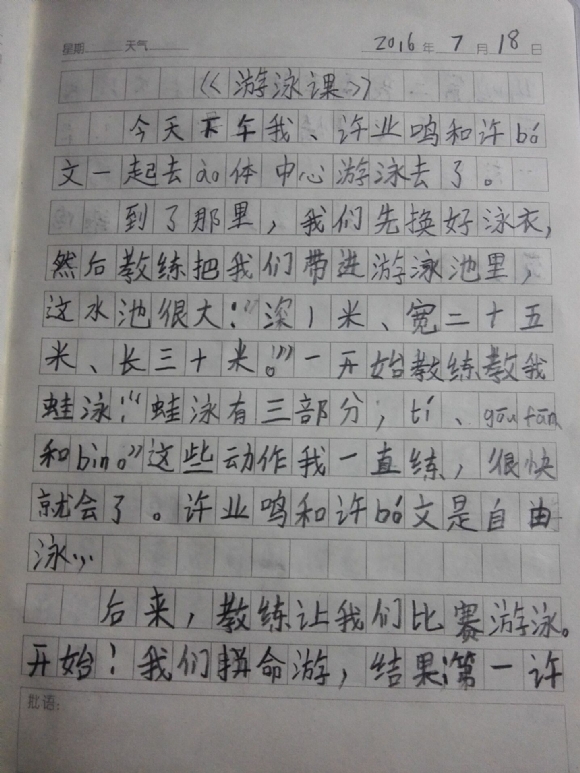 星期 天气 2016年7月18日
《游泳课》
今天下午我、许业鸣和许bó
文一起去ào体中心游泳去了。
到了那里，我们先换好泳衣，
然后教练把我们带进游泳池里，
这水池很大！“深1米、宽二十五
米、长三十米。”一开始教练教我
蛙泳：“蛙泳有三部分；tí、gōu fān
和bìng。”这些动作我一直练，很快
就会了。许业鸣和许bó文是自由
泳…
后来，教练让我们比赛游泳。
开始！我们拼命游，结果：第一许
批语：